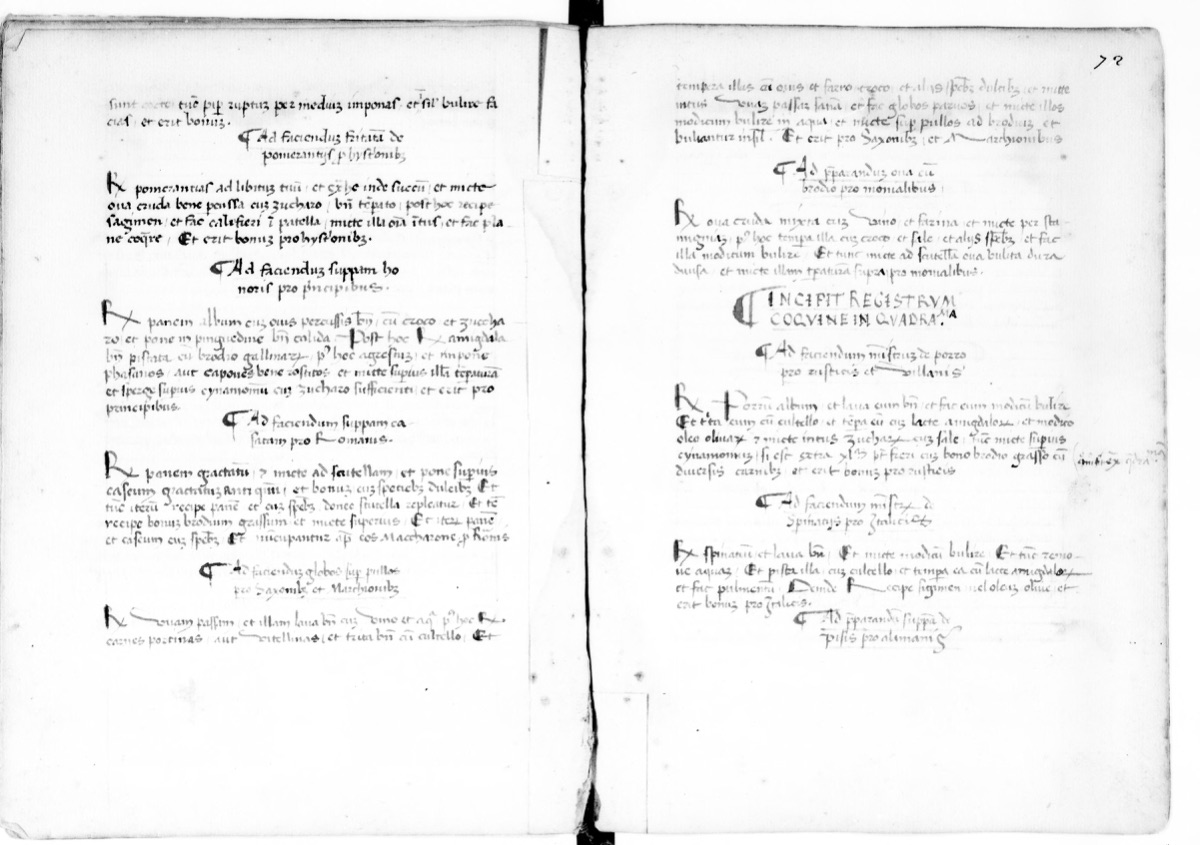 tuc pip ruptuz per moduz imponas et sil bulire fa
cias et erit bonuz.
Ad facienduz fritata de
pomerantijs p hystōnibz
Rx pomerantias ad libituz tuū et exhe inde succū et micte
oua cruda bene pcussa cuz zucharo bn̄ tēpato post hoc recipe
sagimen et fac califieri ī patella micte illa oīa ītus et fac pla
ne coqre Et erit bonuz pro hystōnibz.
Ad faciendum suppam ho
noris pro principibus.
Rx panem album cuz ouis percussis bn̄ cū croco et zuccha
ro et pone in pinguedine bn̄ calida Post hoc Rx amigdala
bn̄ pistata cū brodio gallinarx pꝰ hoc agrestuz et impone
phasanos aut capones bene rostitos et micte supius illā tēpaturā
et sperge supius cynamomū cuz zucharo sufficienti et erit pro
principibus.
Ad faciendum suppam ca
satam pro Romanis.
Rx panem gractatū et micte ad scutellam et pone superius
caseum gractatuz et bonuz cuz speciebz dulcibz Et
tūc iteruz recipe panē et cuz spebz donec scutella repleatur Et tē
recipe bonuz brodium grassum et micte superius Et iterz panē
et caseum cuz spebz Et nūcupantur Maccharone p
Ad faciendūz globos sup pullos
pro Saxonibz et Marchionibz
Rx Vuam passam et illam laua bn̄ cuz vino et aqa pꝰ hoc Rx
carnes porcinas aut vitellinas et trita bn̄ cū cultello Et
72
tempera illis cū ouis et farro croco et alijs spebz dulcibz et micte
intus Vuas passas sanas et fac globos paruos et micte illos
modicum bulire in aqua et micte sup pullos ad brodiuz et
buliantur insil Et erit pro Saxonibz et Marchionibus
Ad pparanduz oua cū
brodio pro monialibus
Rx oua cruda mixta cuz Vino et farina et micte per sta
mignaz pꝰ hoc tempa illa cuz croco et sale et alijs spebz et fac
illa modicum bulire Et tunc micte ad scutellā oua bulita dura
diuisa et micte illam tpaturā supra pro monialibus.
INCIPIT REGISTRVM
COQVINE IN QVADRA.MA
Ad faciendum mīstruz de porro
pro rusticis et Villanis
Rx Porrū album et laua eum bn̄ et fac eum modicū bulire
Et trita eum cū cultello et tēpa eū cuz lacte amigdalox et modico
oleo oliuax et micte intus zucharx cuz sale tūc micte supius
cynamomuz si est extra xlam pt fieri cuz bono brodio grasso cū
diuersis carnibz et erit bonuz pro rusticis
Ad faciendum mīstx de
Spinatijs pro
Rx spinatium et laua bn̄ Et micte modicū bulire Et tūc remo
ue aquaz Et pista illa cuz cultello et tempa ea cū lacte amigdalox
et fac pulmentū Deinde Recipe sagimen uel oleuz oliue et
erit bonuz pro
Ad pparanduz suppā de
pisis pro alimanis